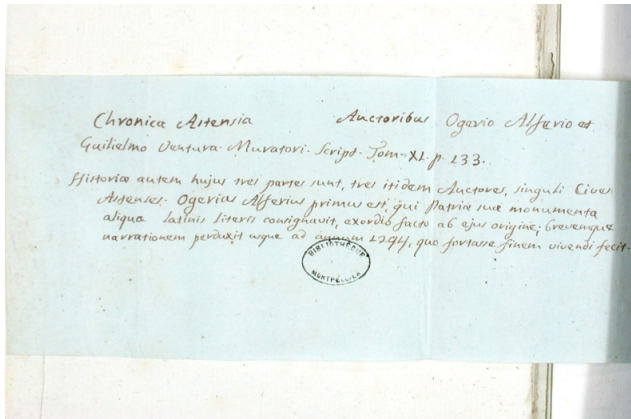 Chronica Astensia Auctoribus Ogerio Alferio et
Guilielmo Ventura. Muratori. Script. Tom. XI. p. 133.
Historiæ autem hujus tres partes sunt, tres itidem Auctores, singuli Cives
Astenses. Ogerius Alferius primus est, qui Patriæ suæ monumenta
aliqua latinis literis consignavit, exordio facto ab ejus origine; brevemque
narrationem perduxit usque ad annum 1294, quo fortasse finem vivendi fecit.
BIBLIOTHEQUE
MONTPELLIER